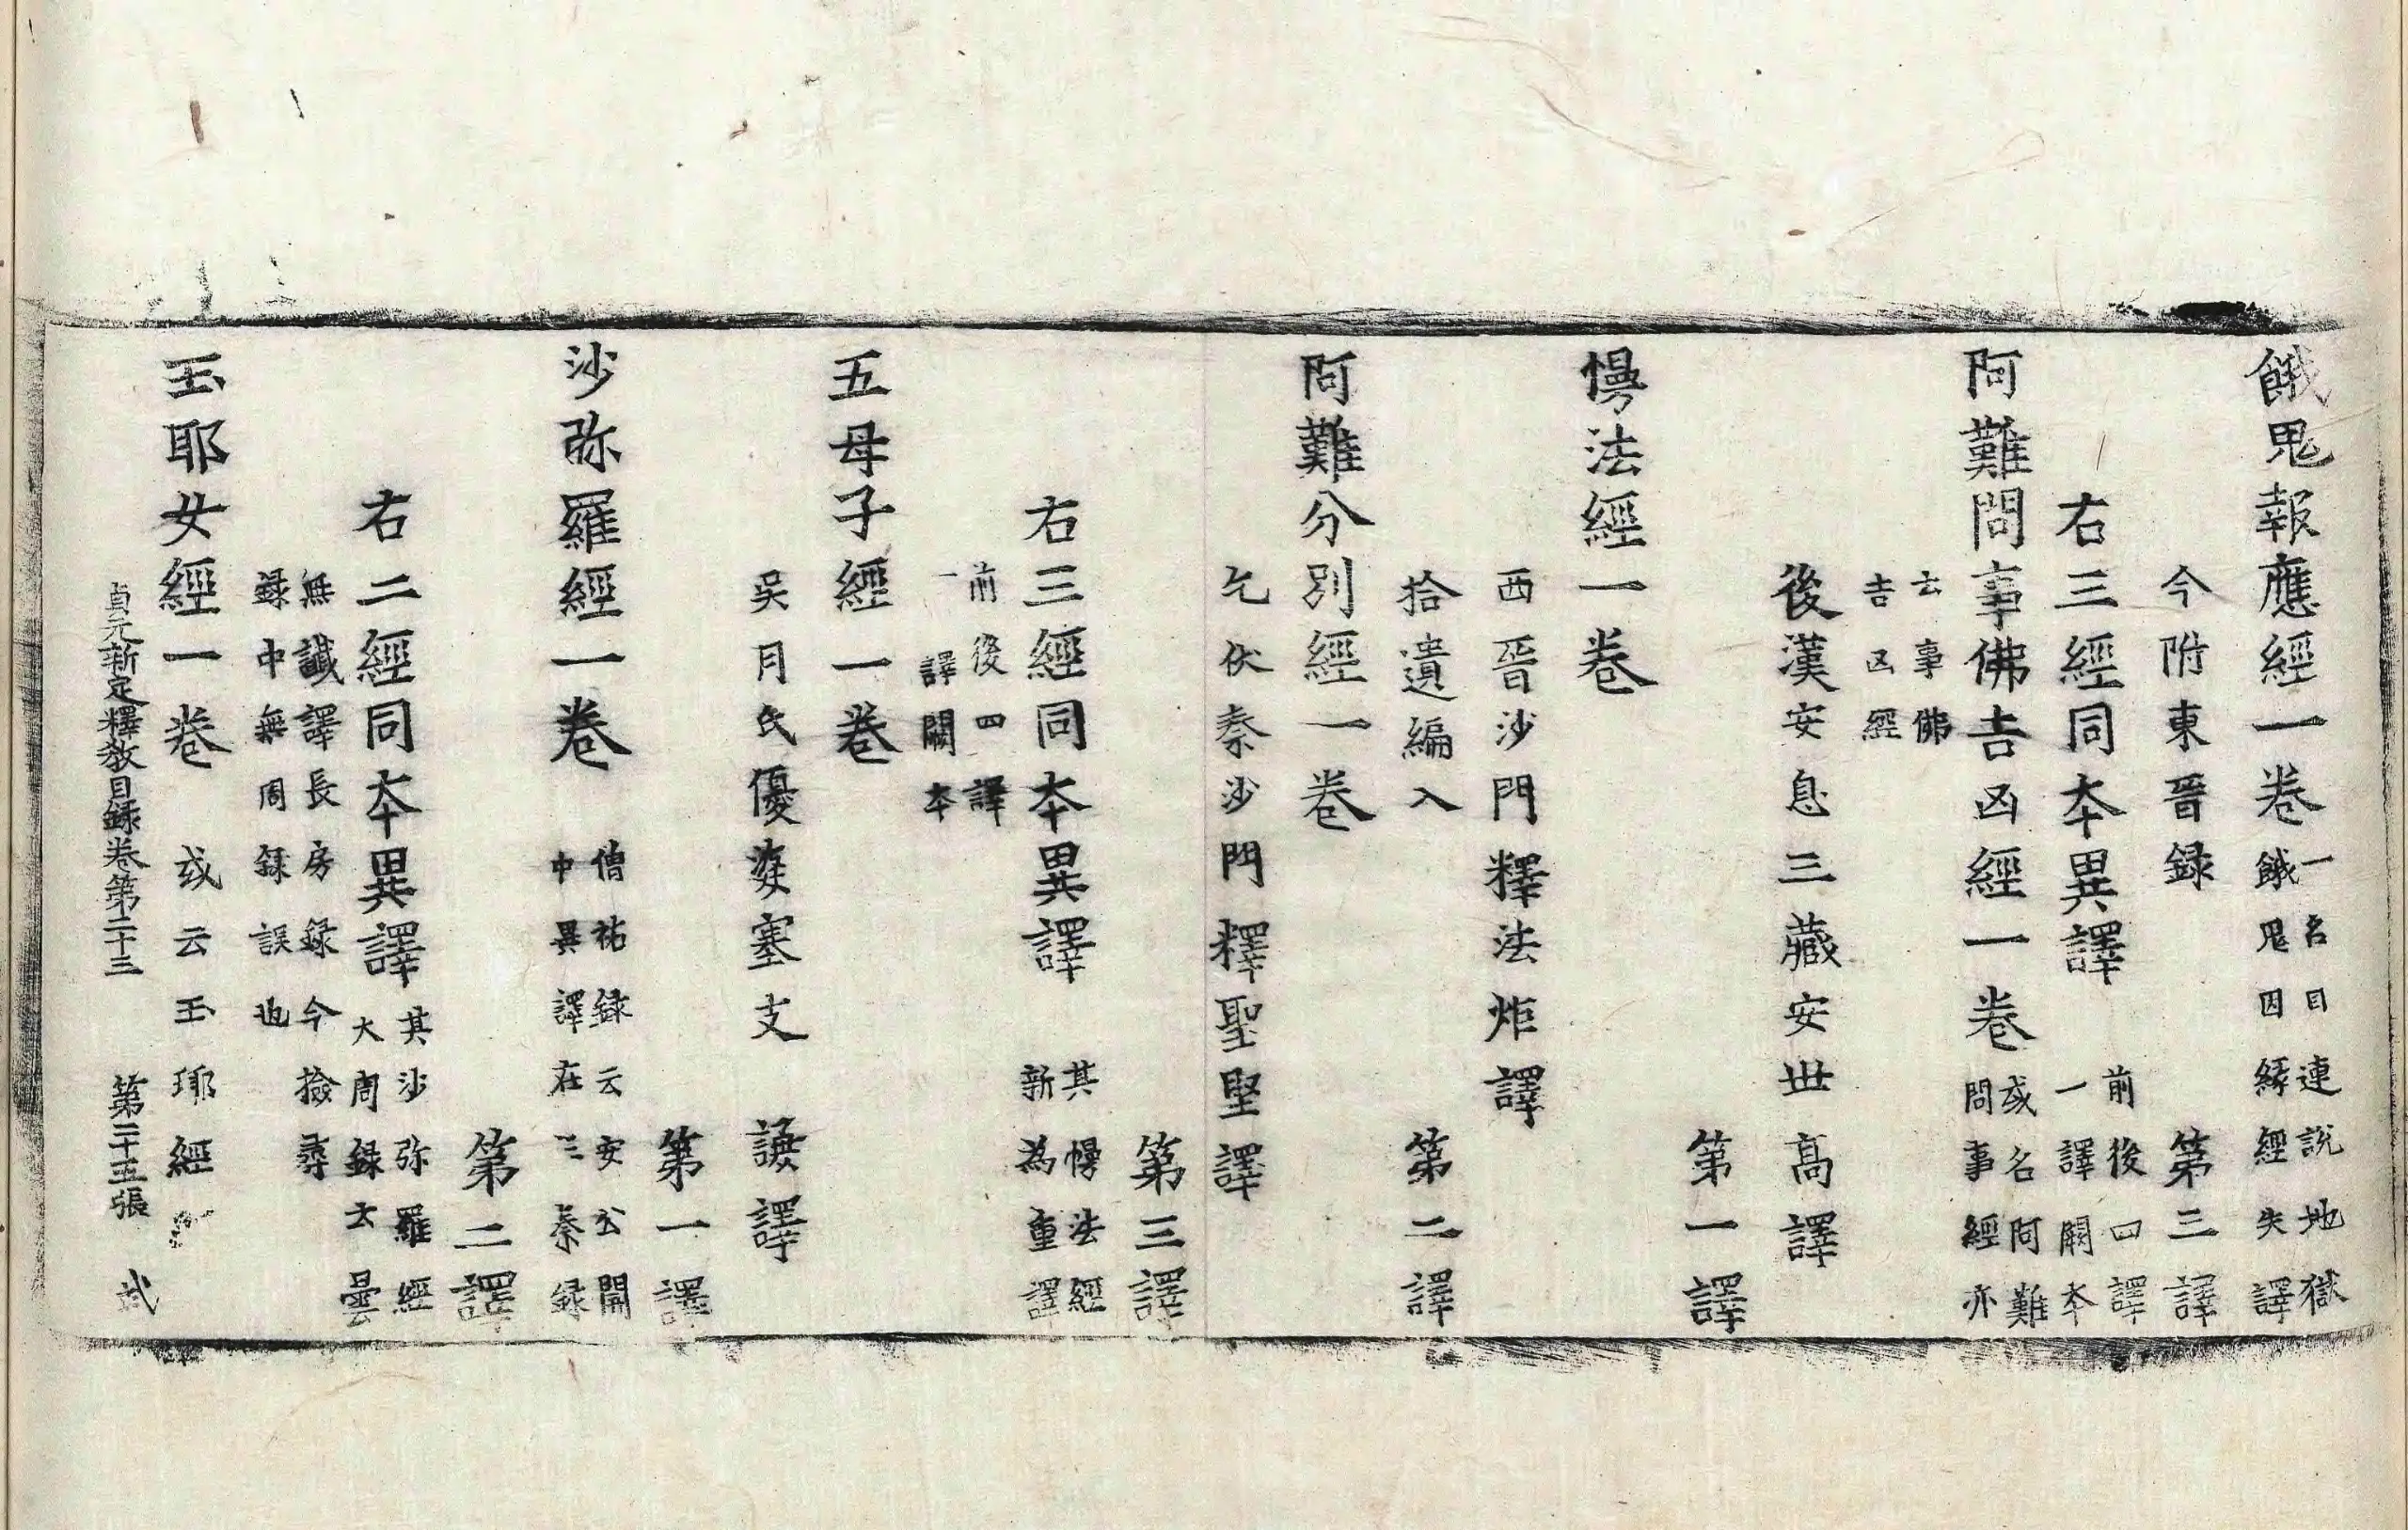 餓鬼報應經一卷 一名目連說地獄餓鬼因緣經失譯
今附東晉録 第三譯
右三經同本異譯 前後四譯一譯闕本
阿難問事佛吉凶經一卷 或名阿難問事經亦
云事佛吉凶經
後漢安息三藏安世高譯
第一譯
慢法經一卷
西晉沙門釋法炬譯
拾遺編入 第二譯
阿難分別經一卷
乞伏秦沙門釋聖堅譯
第三譯
右三經同本異譯 其慢法經新為重譯
前後四譯一譯闕本
五母子經一卷
吳月氏優婆塞支謙譯
第一譯
沙弥羅經一卷 僧祐録云安公關中異譯在三秦録
第二譯
右二經同本異譯 其沙弥羅經大周録云曇
無讖譯長房録今撿尋録中無周録誤也
玉耶女經一卷 或云玉耶經
貞元新定釋教目録卷第二十三 第二十五張 弐